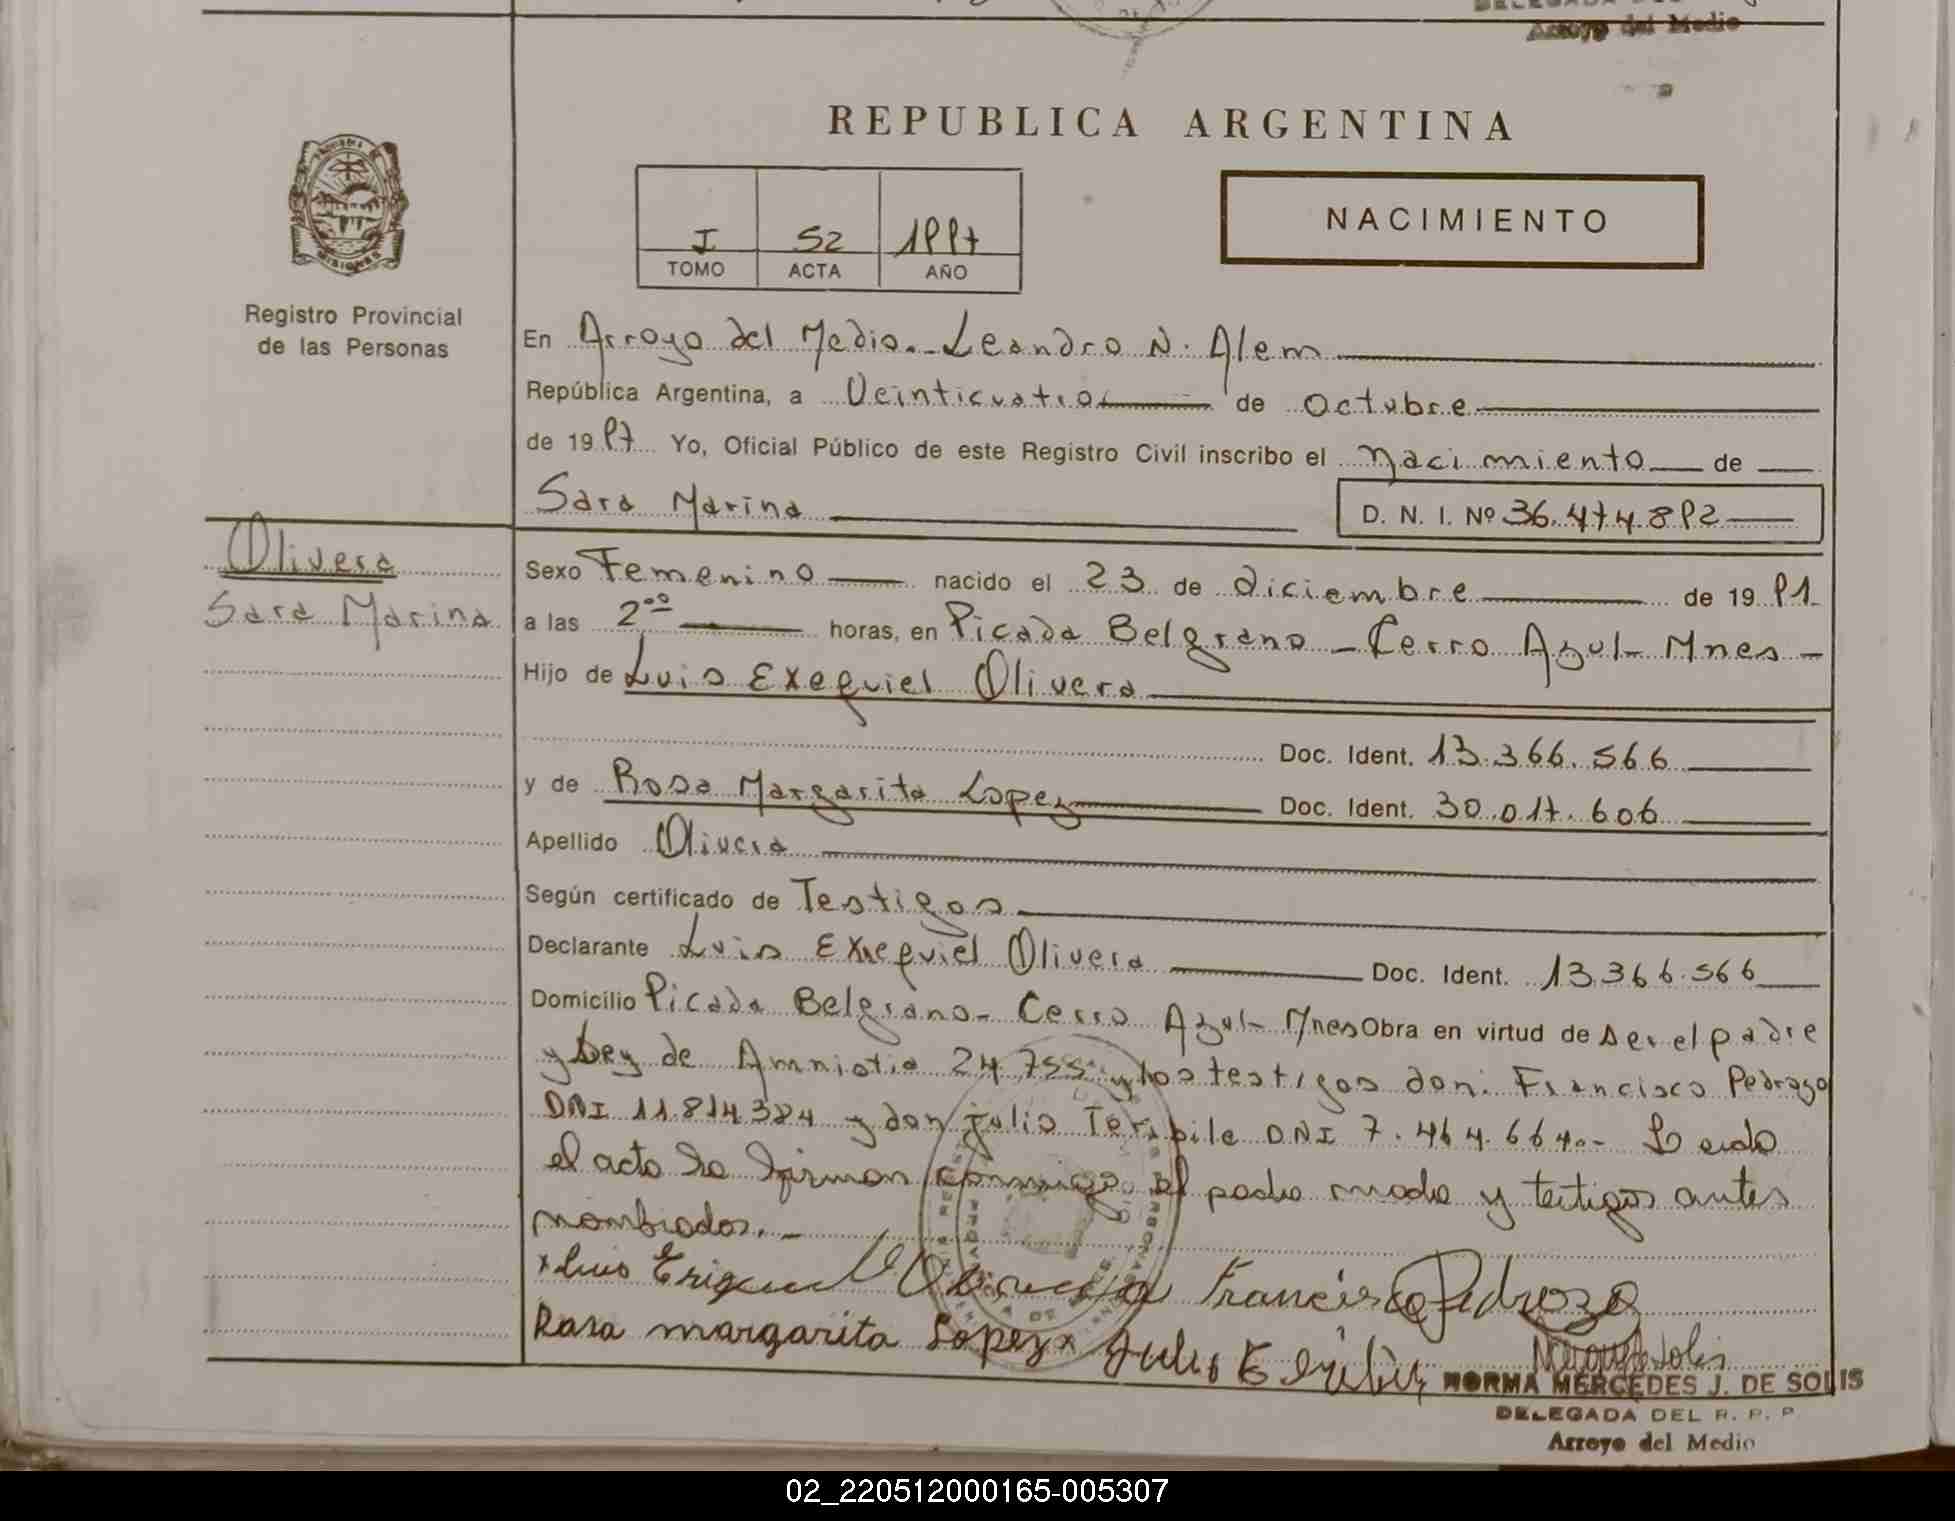 Arroyo del Medio
REPUBLICA ARGENTINA
MISIONES
Registro Provincial
de las Personas
I 52 1997
TOMO ACTA AÑO
NACIMIENTO
En Arroyo del Medio.-Leandro N. Alem
República Argentina, a Veinticuatro de Octubre
de 1997 Yo, Oficial Público de este Registro Civil inscribo el nacimiento de
Sara Marina
D. N. I. Nº 36.474.892
Olivera
Sara Marina
Sexo Femenino nacido el 23 de diciembre de 1991
a las 2ºº horas, en Picada Belgrano - Cerro Azul- Mnes -
Hijo de Luis Exequiel Olivera
Doc. Ident. 13.366.566
y de Rosa Margarita Lopez Doc. Ident. 30.017.606
Apellido Olivera
Según certificado de Testigos
Declarante Luis Exequiel Olivera Doc. Ident. 13.366.566
Domicilio Picada Belgrano- Cerro Azul- Mnes Obra en virtud de ser el padre
y Ley de Amnistia 24.755 y los testigos don: Francisco Pedrozo
DNI 11.814.384 y don Julio Teribile DNI 7.464.664.- Leida
el acta la firman conmigo el padre madre y testigos antes
nombrados.-
x Luis Olivera Francisco Pedrozo
Rosa margarita Lopez x Julio
NORMA MERCEDES J. DE SOLIS
DELEGADA DEL R. P. P
Arroyo del Medio
02_220512000165-005307